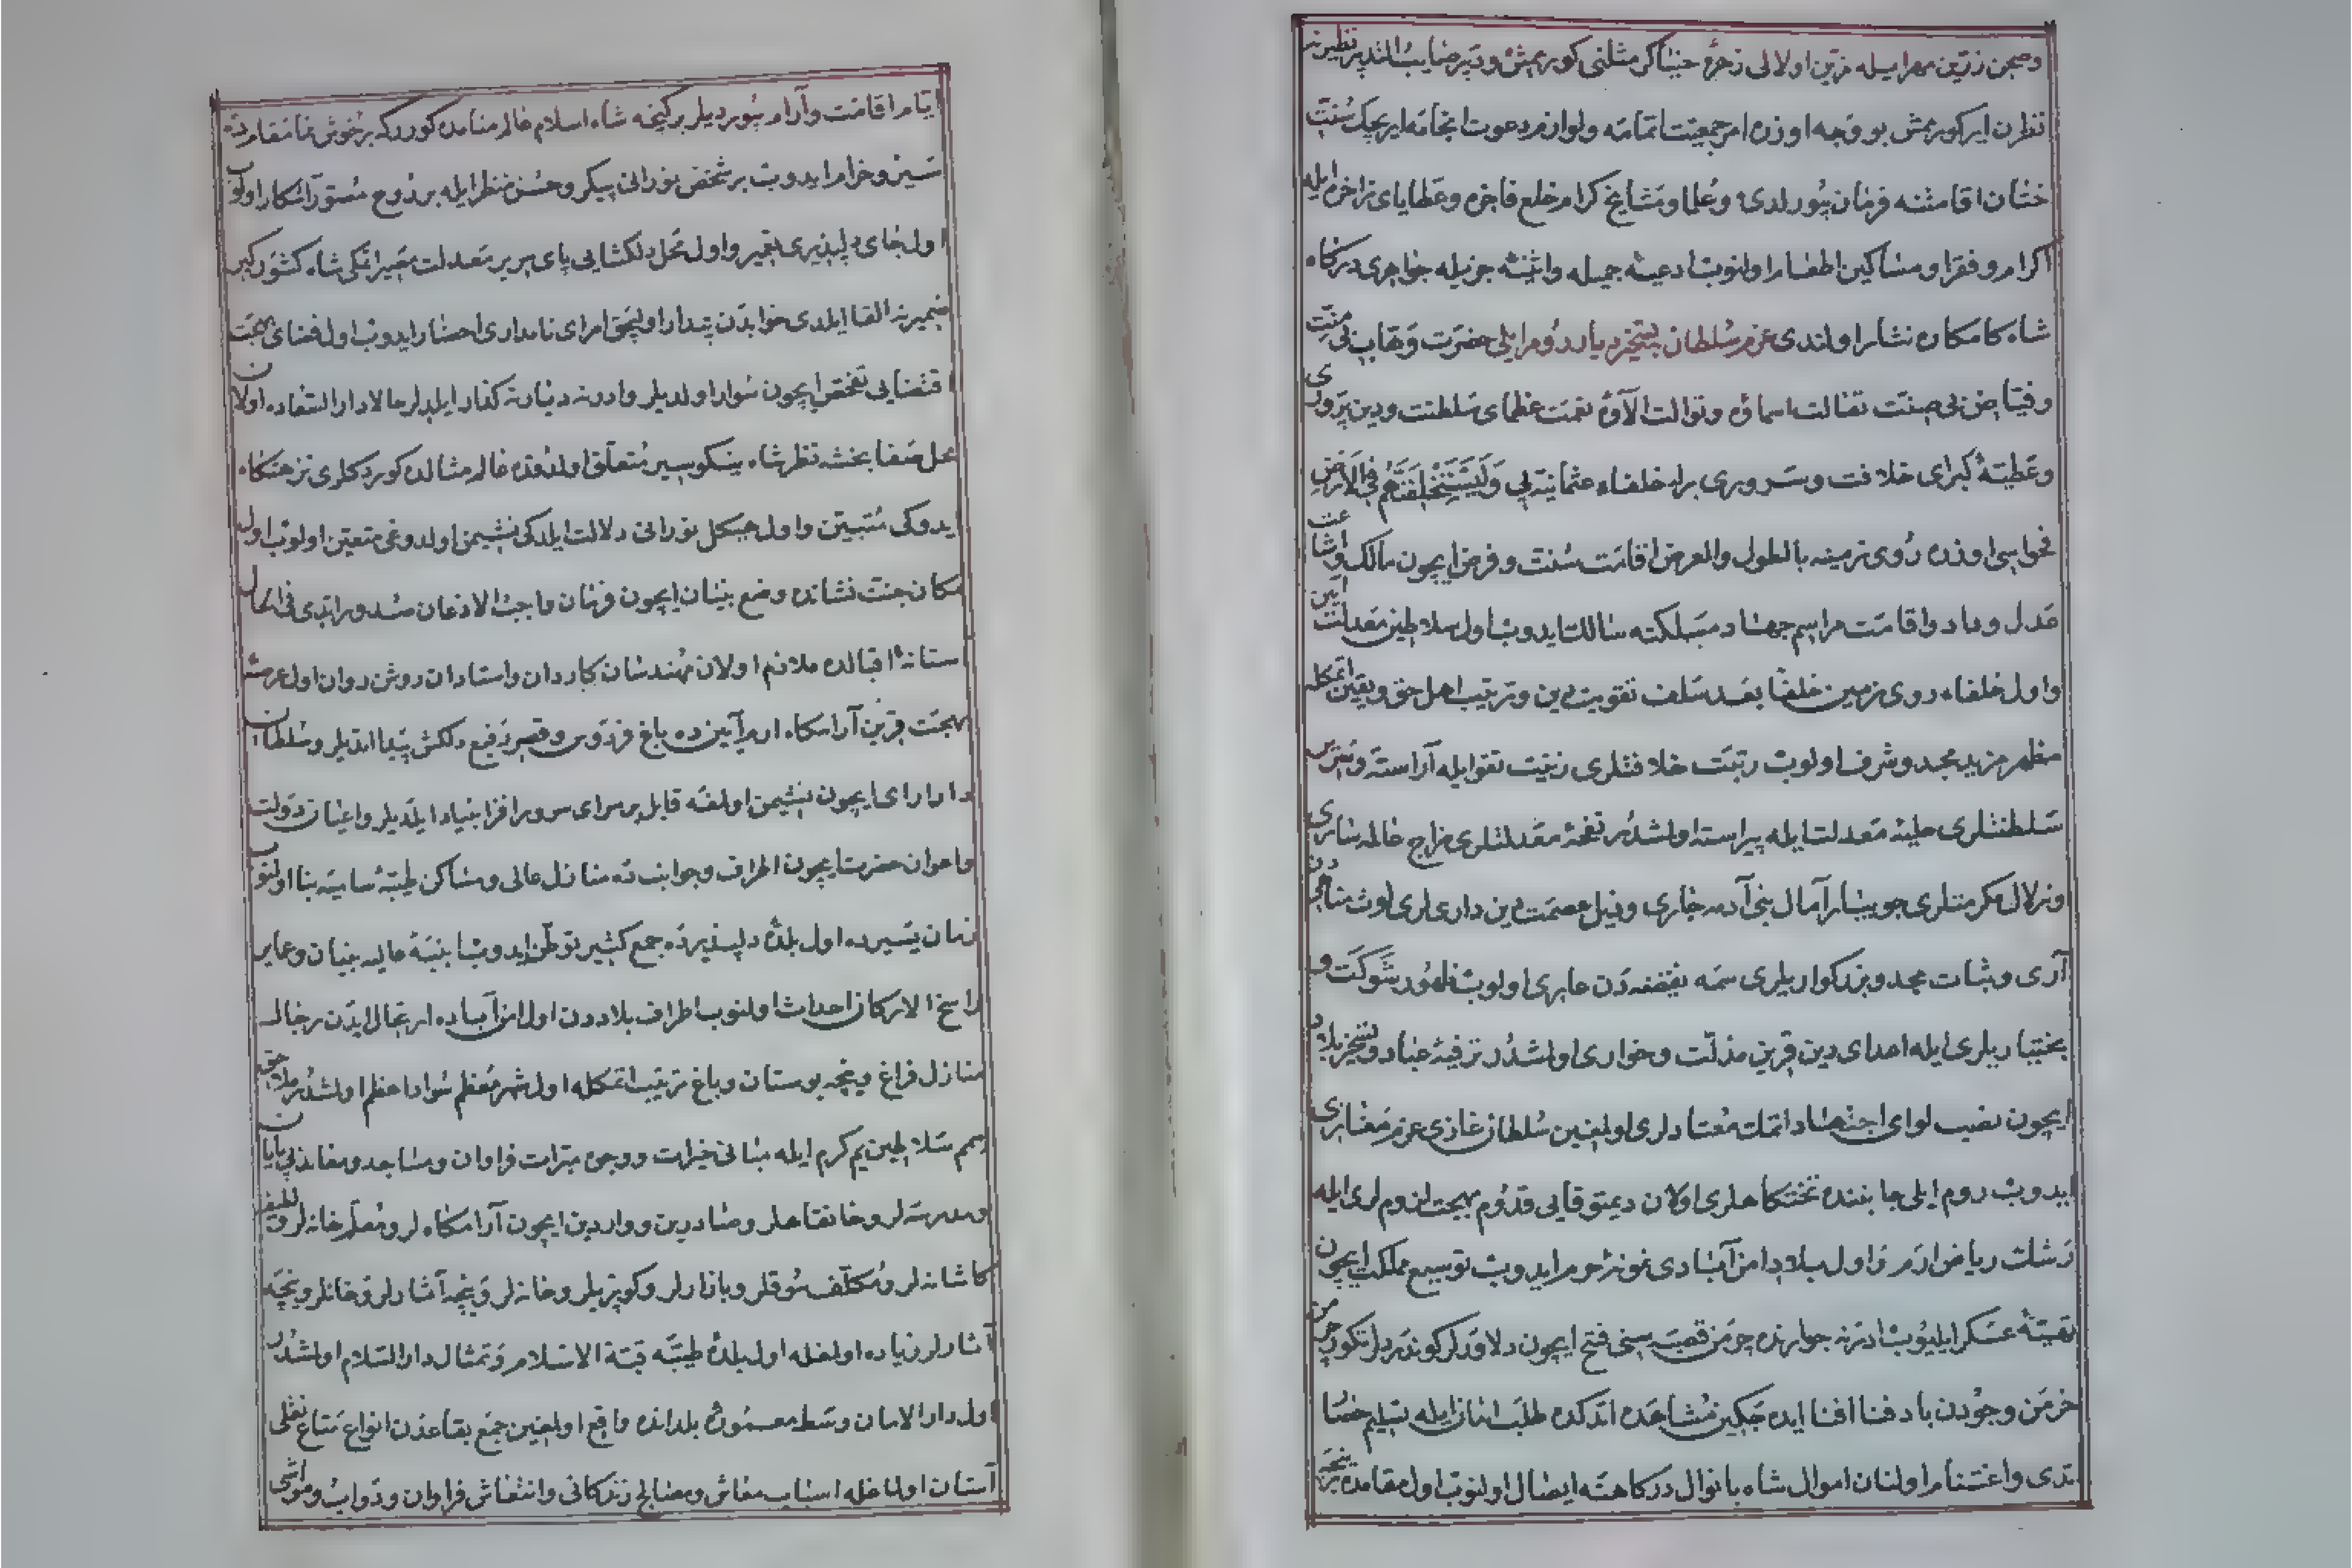 وصحن زرین مهر ایله مزین اولالی زحل حیناکر مثلنی کورممش ودبیر صایب التدبیر نظیرنه
نظرن ایر کورممش بو وجه اوزره امر جمعیت اتمامه ولوازم دعوت انجامه ایریجک سنت
ختان اقامتنه فرمان بیورلدی وعلما ومشایخ کرام خلع فاخره وعطایای زاخره ایله
اکرام وفقرا ومساکین اطعام اولنوب ادعیه جمیله واثنیه جزیله جواهری درکاه
شاه کامکاره نثار اولندی عزم سلطان بتسخیر دیار روم ایلی حضرت وهاب بی منت
وفیاض بی ضنت تعالت اسماؤه وتوالت الآؤه نعمت عظمای سلطنت ودین پرور ی
وعطیه کبرای خلافت وسروری برله خلفاء عثمانیه یی ولیستخلفنهم فی الارض
فحواسی اوزره روی زمینه بالطول والعرض اقامت سنت وفرض ایچون مالک واشاعت
عدل وداد واقامت مراسم جهاد مسلکنه سالک ایدوب اول سلاطین معدلت آیین
واول خلفاء روی زمین خلفا بعد سلف تقویت دین وترتیب اهل حق ویقین اتمکله
مظهر مزید مجد وشرف اولوب رتبت خلافتلری زینت تقوا ایله آراسته وسریر
سلطنتلری حلیه معدلت ایله پیراسته اولشدر نفحه معدلتلری مزاج عالمه ساری
وزلال مکرمتلری جویبار آمال بنی آدمه جاری وذیل عصمت دین داریلری لوث مناهیدن
آری وثبات مجد وبزرکواریلری سمه نقیضه دن عاری اولوب ظهور شوکت و
بختیاریلری ایله اعدای دین قرین مذلت وخواری اولشدر ترفیه عباد وتسخیر بلاد
ایچون نصب لوای اجتهاد اتمک معتادلری اولمغین سلطان غازی عزم مغازی
ایدوب روم ایلی جانبنده تختکاهلری اولان دیمتوقایی قدوم بهجت لزوملری ایله
رشک ریاض ارم واول بلاد امن آبادی نمونه حرم ایدوب توسیع مملکت ایچون
تعبیه عسکر ایلیوب ادرنه جوارنده چرمن قصبه سنی فتح ایچون دلاورلر کوندردیلر تکور چرمن
خرمن وجودن باد فنا افنا ایده جکین مشاهده اتدکده طلب امان ایله تسلیم حصار
اتدی واغتنام اولنان اموال شاه بانوال درکاهنه ایصال اولنوب اول مقامده نیجه بر
ایام اقامت وآرام بیوردیلر بر کیجه شاه اسلام عالم منامده کوررکه بر خوش نما مقامده
سیر وخرام ایدوب بر شخص نورانی پیکر وحسن منظر ایله بر روح مصور آشکار اولوب
اول جای دلپذیری تعمیر واول محل دلکشایی پای سریر معدلت مصیر ایتکی شاه کشورکیر
ضمیرنه القا ایلدی خوابدن بیدار اولیجق امرای نامداری احضار ایدوب اول فضای بهجت
اقتضایی تفحص ایچون سوار اولدیلر وادرنه دیارنه کذار ایلدیلر حالا دار السعاده اولان
محل صفا بخشه نظر شاه نیکو سیر متعلق اولدوقده عالم مثالده کوردکلری نزهتکاه
ایدوکی متبین واول هیکل نورانی دلالت ایلدکی نشیمن اولدوغی متعین اولوب اول
مکان جنت نشانده وضع بنیان ایچون فرمان واجب الاذعان صدور ایتدی فی الحال
آستانه اقبالده ملازم اولان مهندسان کاردان واستادان روش روان اول عرصه
بهجت قرین آرامکاه ارم آیینده باغ فردوس وقصر رفیع دلکش پیدا ایتدیلر وسلطان
دارا رای ایچون نشیمن اولمغه قابل بر سرای سرور افزا بنیاد ایلدیلر واعیان دولت
واعوان حضرت ایچون اطراف وجوانبده منازل عالی ومساکن طیبه سامیه بنا اولنوب
زمان یسیرده اول بلده دلپذیرده جمع کثیر توطن ایدوب ابنیه عالیه بنیان وعمایر
راسخ الارکان احداث اولنوب اطراف بلاددن اول امن آباده ارتحال ایدن رجال
منازل فراغ ونیجه بوستان وباغ ترتیب اتمکله اول شهر معظم سواد اعظم اولشدر ملاحق
همم سلاطین یم کرم ایله مبانی خیرات ووجوه مبرات فراوان ومساجد ومعابد بی پایان
ومدرسه لر وخانقاهلر وصادرین وواردین ایچون آرامکاه لر ومعلم خانه لر ولطیف
کاشانه لر ومکلف سوقلر وبازارلر وکوپریلر وخانه لر ونیجه آثارلر وخانلر ونیجه
آثارلر زیاده اولمغله اول بلده طیبه قبة الاسلام وتمثال دار السلام اولشدر
اول دار الامان وسط معموره بلدانده واقع اولمغین جمع بقاعدن انواع متاع نقلی
آسان اولمغله اسباب معاش ومصالح زندکانی وانتعاش فراوان ودواب ومواشی